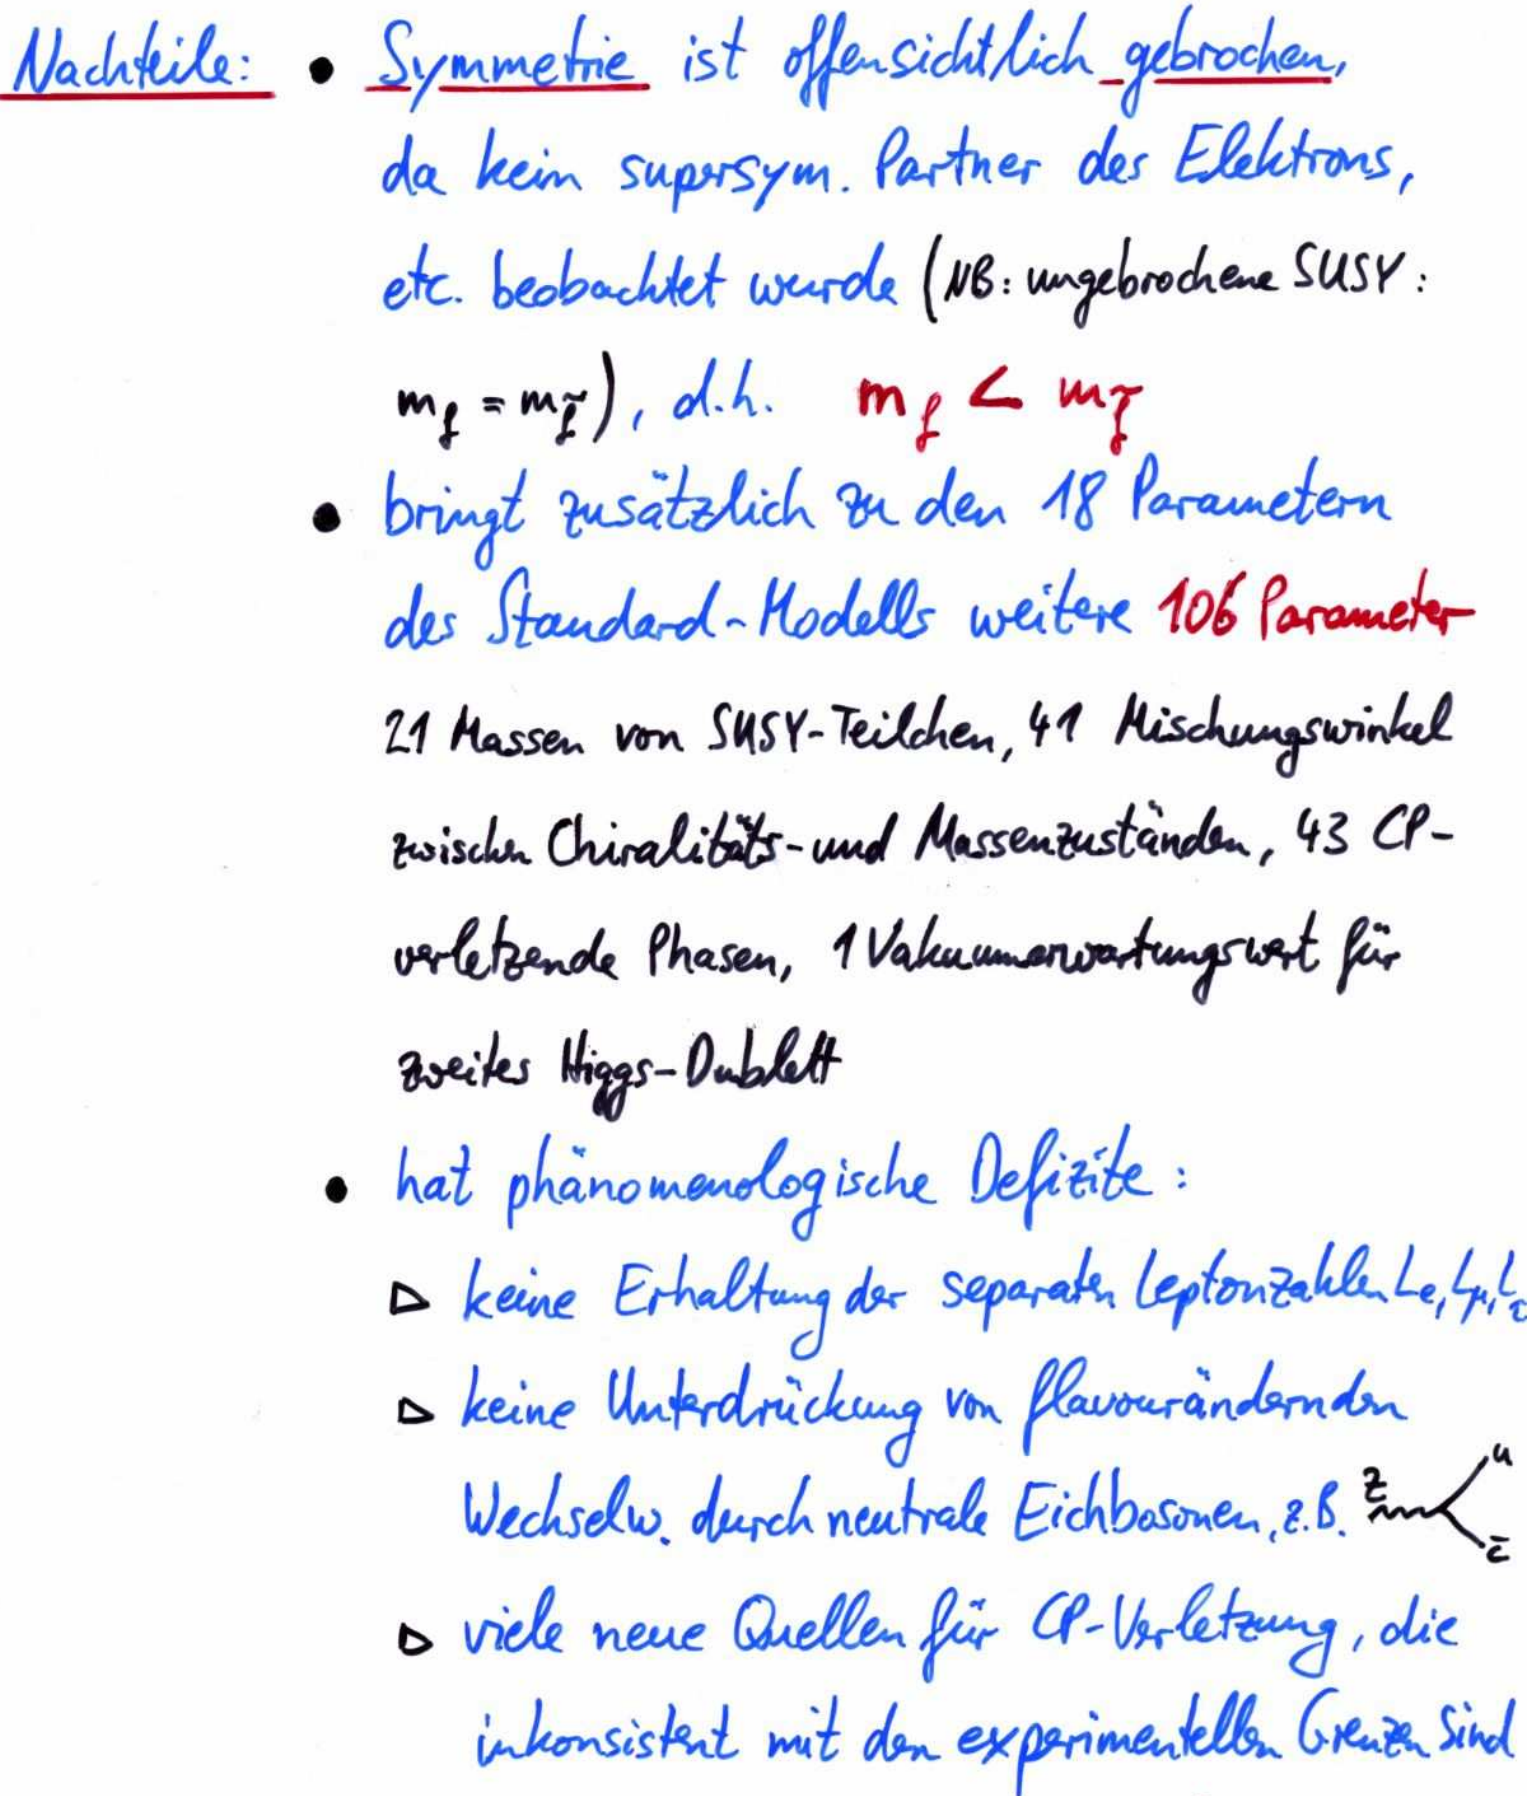 Nachteile: • Symmetrie ist offensichtlich gebrochen,
da kein supersym. Partner des Elektrons,
etc. beobachtet wurde (NB: ungebrochene SUSY:
m_f = m_f̃), d.h. m_f < m_f̃
• bringt zusätzlich zu den 18 Parametern
des Standard-Modells weitere 106 Parameter
21 Massen von SUSY-Teilchen, 41 Mischungswinkel
zwischen Chiralitäts- und Massenzuständen, 43 CP-
verletzende Phasen, 1 Vakuumerwartungswert für
zweites Higgs-Dublett
• hat phänomenologische Defizite:
▷ keine Erhaltung der separaten Leptonzahlen L_e, L_μ, L_τ
▷ keine Unterdrückung von flavourändernden
Wechselw. durch neutrale Eichbosonen, z.B. Z u c̄
▷ viele neue Quellen für CP-Verletzung, die
inkonsistent mit den experimentellen Grenzen sind